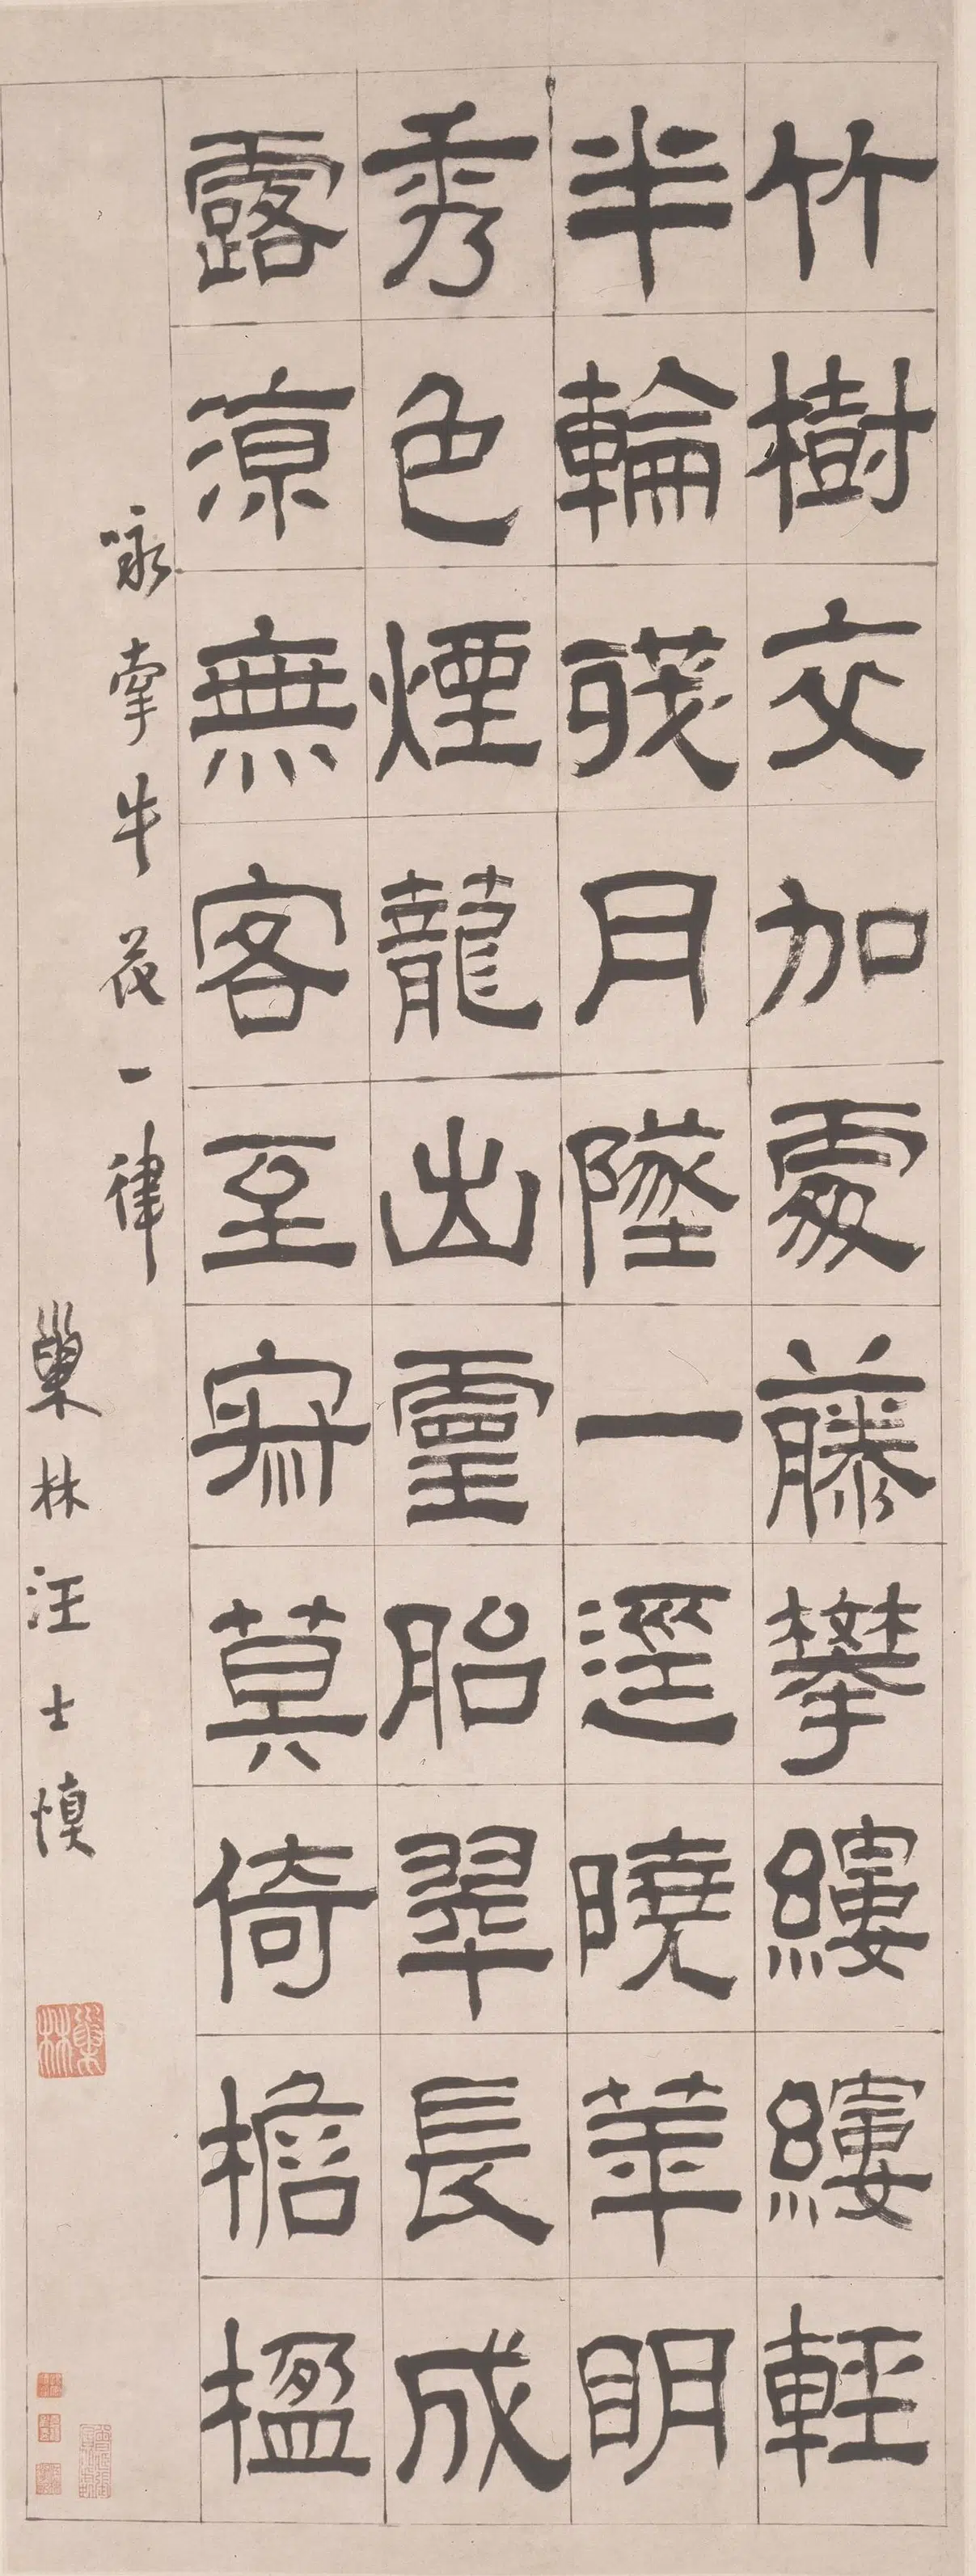 竹樹交加處藤攀縷縷輕
半輪殘月墜一逕曉華明
秀色煙籠出靈胎翠長成
露涼無客至寂莫倚檐楹
詠牽牛花一律
巢林汪士慎
巢林